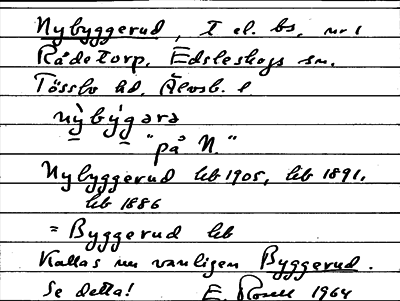 Nybyggerud, T el. bs, nr 1
Rådetorp, Edsleskogs sn.
Tössbo hd, Älvsb. l
nỳbýgərə
"på N."
Nybyggerud leb 1905, leb 1891.
leb 1886
= Byggerud leb
Kallas nu vanligen Byggerud.
Se detta! E. Rosell 1964